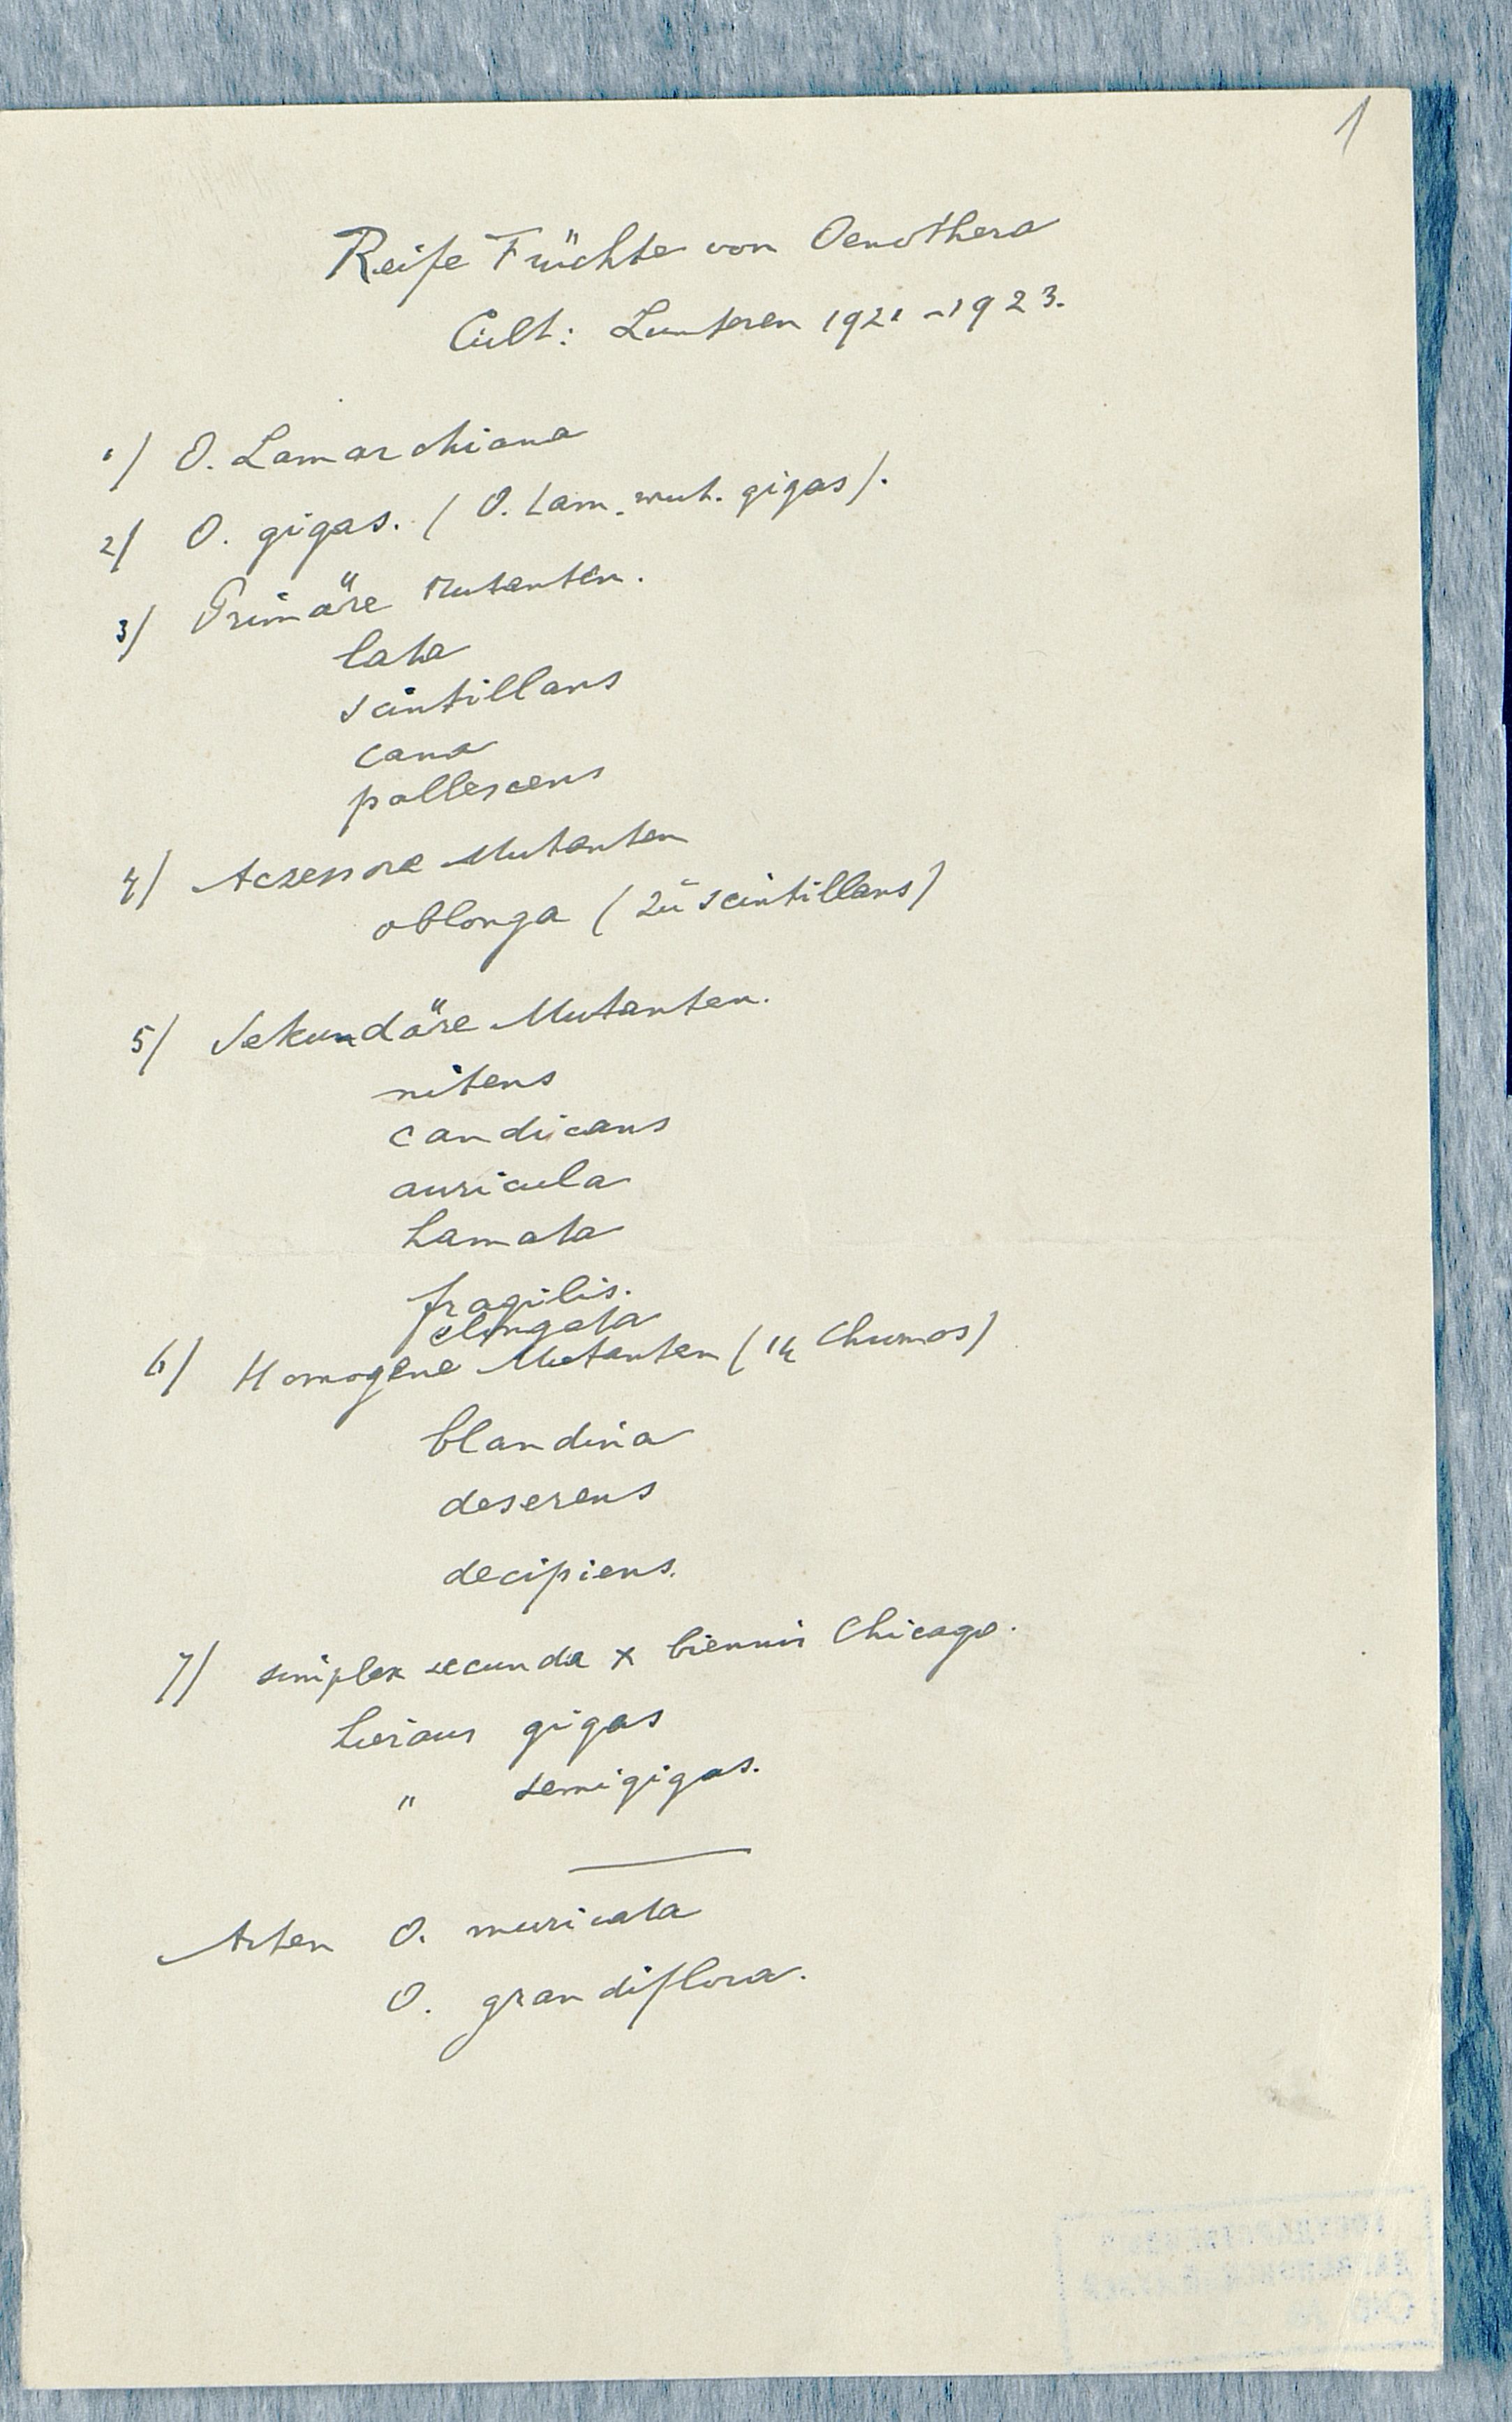 1
Reife Früchte von Oenothera
Cült: Lunteren 1921-1923.
1) O. Lamarckiana
2) O. gigas. (O. Lam. mut. gigas).
3) Primäre Mutanten.
lata
scintillans
cana
pallescens
4) Aczessore Mutanten
oblonga (zü scintillans)
5) Sekundäre Mutanten.
nitens
candicans
auricula
hamata
fragilis.
elongata
6) Homogene Mutanten (14 Chromos)
blandina
deserens
decipiens.
7) simplex secunda x biennis Chicago.
hieraus gigas
" semigigas.
Arten O. muricata
O. grandiflora.